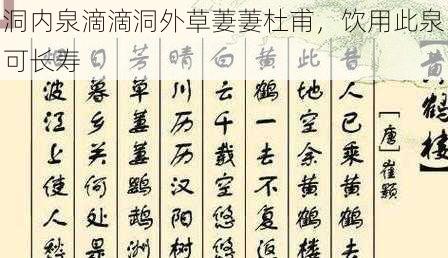 洞内泉滴滴洞外草萋萋杜甫，饮用此泉
可长寿
黄鹤楼
[唐]崔颢
昔人已乘黄鹤去
此地空余黄鹤楼
黄鹤一去不复返
白云千载空悠悠
晴川历历汉阳树
芳草萋萋鹦鹉洲
日暮乡关何处是
波江上使人愁